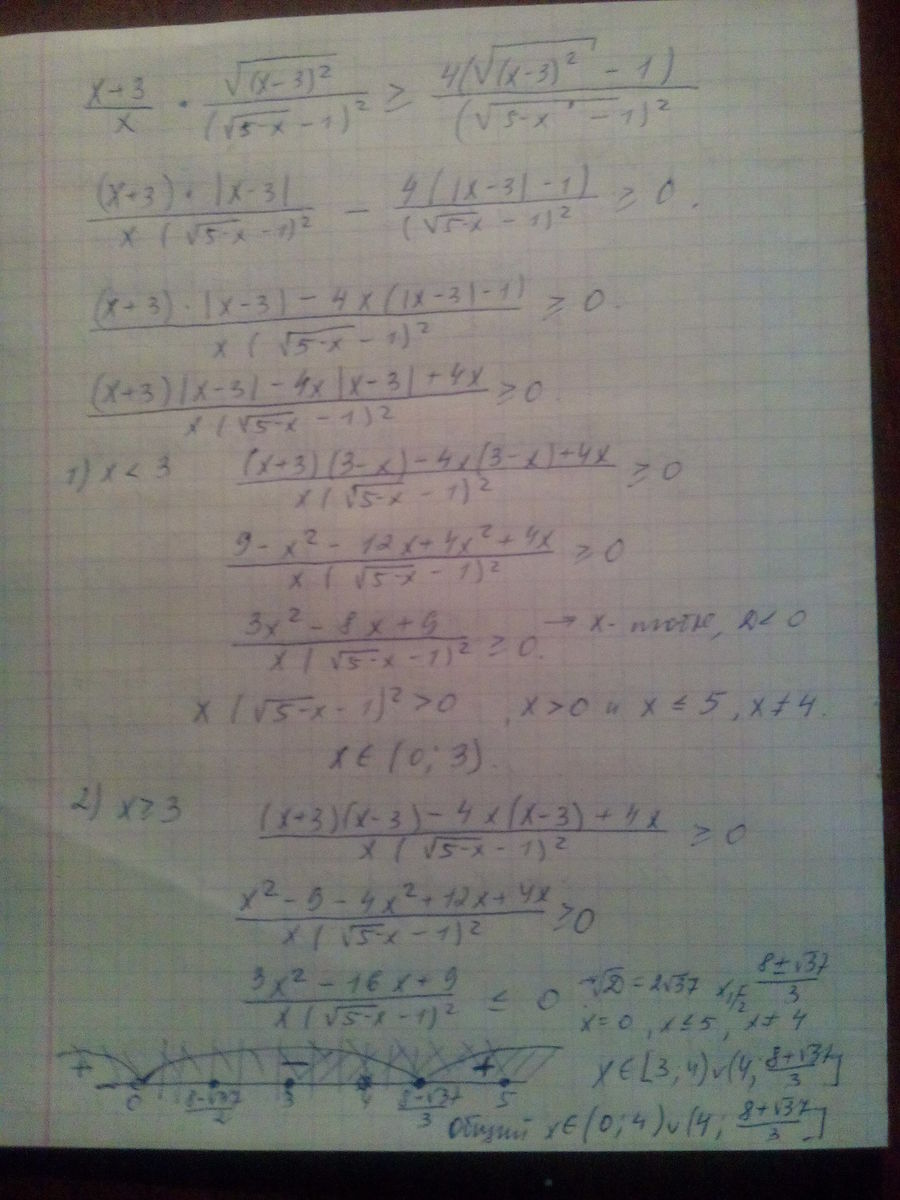 x+3/x · √(x-3)²/(√5-x - 1)² ≥ 4(√(x-3)² - 1)/(√5-x - 1)²
(x+3)·|x-3|/x(√5-x - 1)² - 4(|x-3|-1)/(√5-x - 1)² ≥ 0.
(x+3)·|x-3| - 4x(|x-3|-1)/x(√5-x - 1)² ≥ 0.
(x+3)|x-3| - 4x|x-3| + 4x/x(√5-x - 1)² ≥ 0.
1) x < 3 (x+3)(3-x) - 4x(3-x) + 4x/x(√5-x - 1)² ≥ 0
9 - x² - 12x + 4x² + 4x/x(√5-x - 1)² ≥ 0
3x² - 8x + 9/x(√5-x - 1)² ≥ 0. → x - D < 0
x(√5-x - 1)² > 0, x > 0 и x ≤ 5, x ≠ 4.
x ∈ (0; 3).
2) x ≥ 3 (x+3)(x-3) - 4x(x-3) + 4x/x(√5-x - 1)² ≥ 0
x² - 9 - 4x² + 12x + 4x/x(√5-x - 1)² ≥ 0
3x² - 16x + 9/x(√5-x - 1)² ≤ 0 √D = 2√37 x₁,₂ = 8±√37/3
x = 0, x ≤ 5, x ≠ 4
+ - + x ∈ [3; 4) ∪ (4; 8+√37/3]
0 8-√37/2 3 4 8-√37/3 5
Общий x ∈ (0; 4) ∪ (4; 8+√37/3]